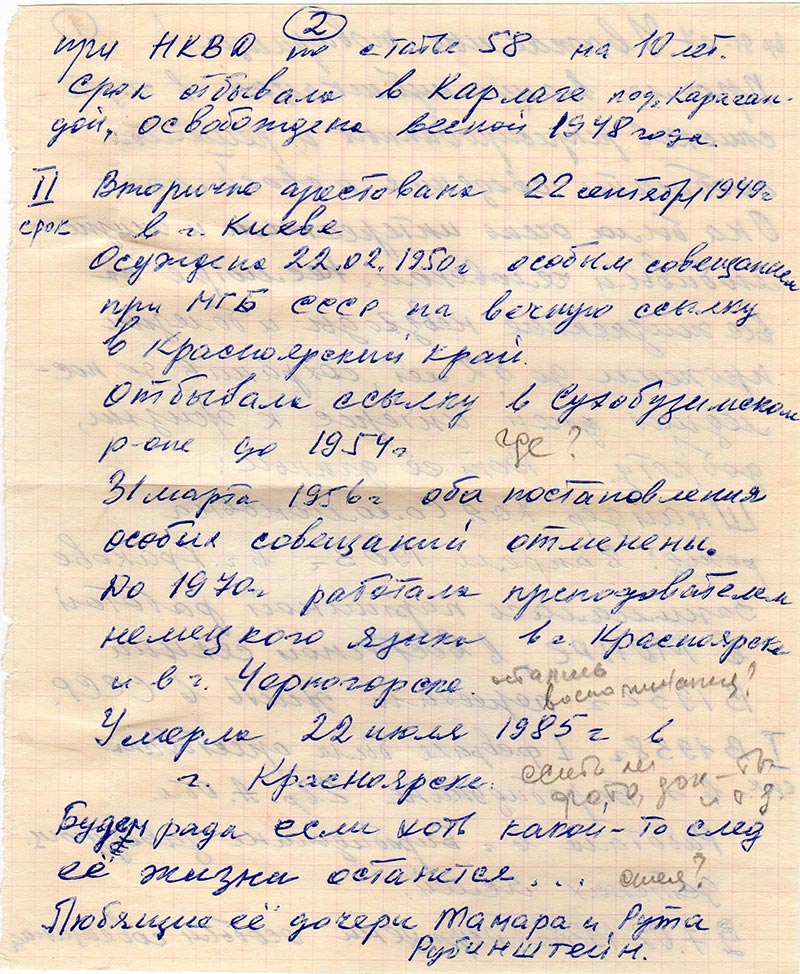 2
при НКВД по статье 58 на 10 лет.
Срок отбывала в Карлаге под Караган-
дой, освобождена весной 1948 года.
II Вторично арестована 22 сентября 1949г
срок в г. Киеве
Осуждена 22.02.1950г особым совещанием
при МГБ СССР на вечную ссылку
в Красноярский край.
Отбывала ссылку в Сухобузимском
р-оне до 1954г где?
31 марта 1956г оба постановления
особых совещаний отменены.
До 1970г работала преподователем
немецкого языка в г. Красноярске
и в г. Черногорске. остались
воспоминания?
Умерла 22 июля 1985г в
г. Красноярске. есть ли
фото, док-ты
и т д
Будем рада если хоть какой-то след
её жизни останется...
Любящие её дочери Тамара и Рута
Рубинштейн.